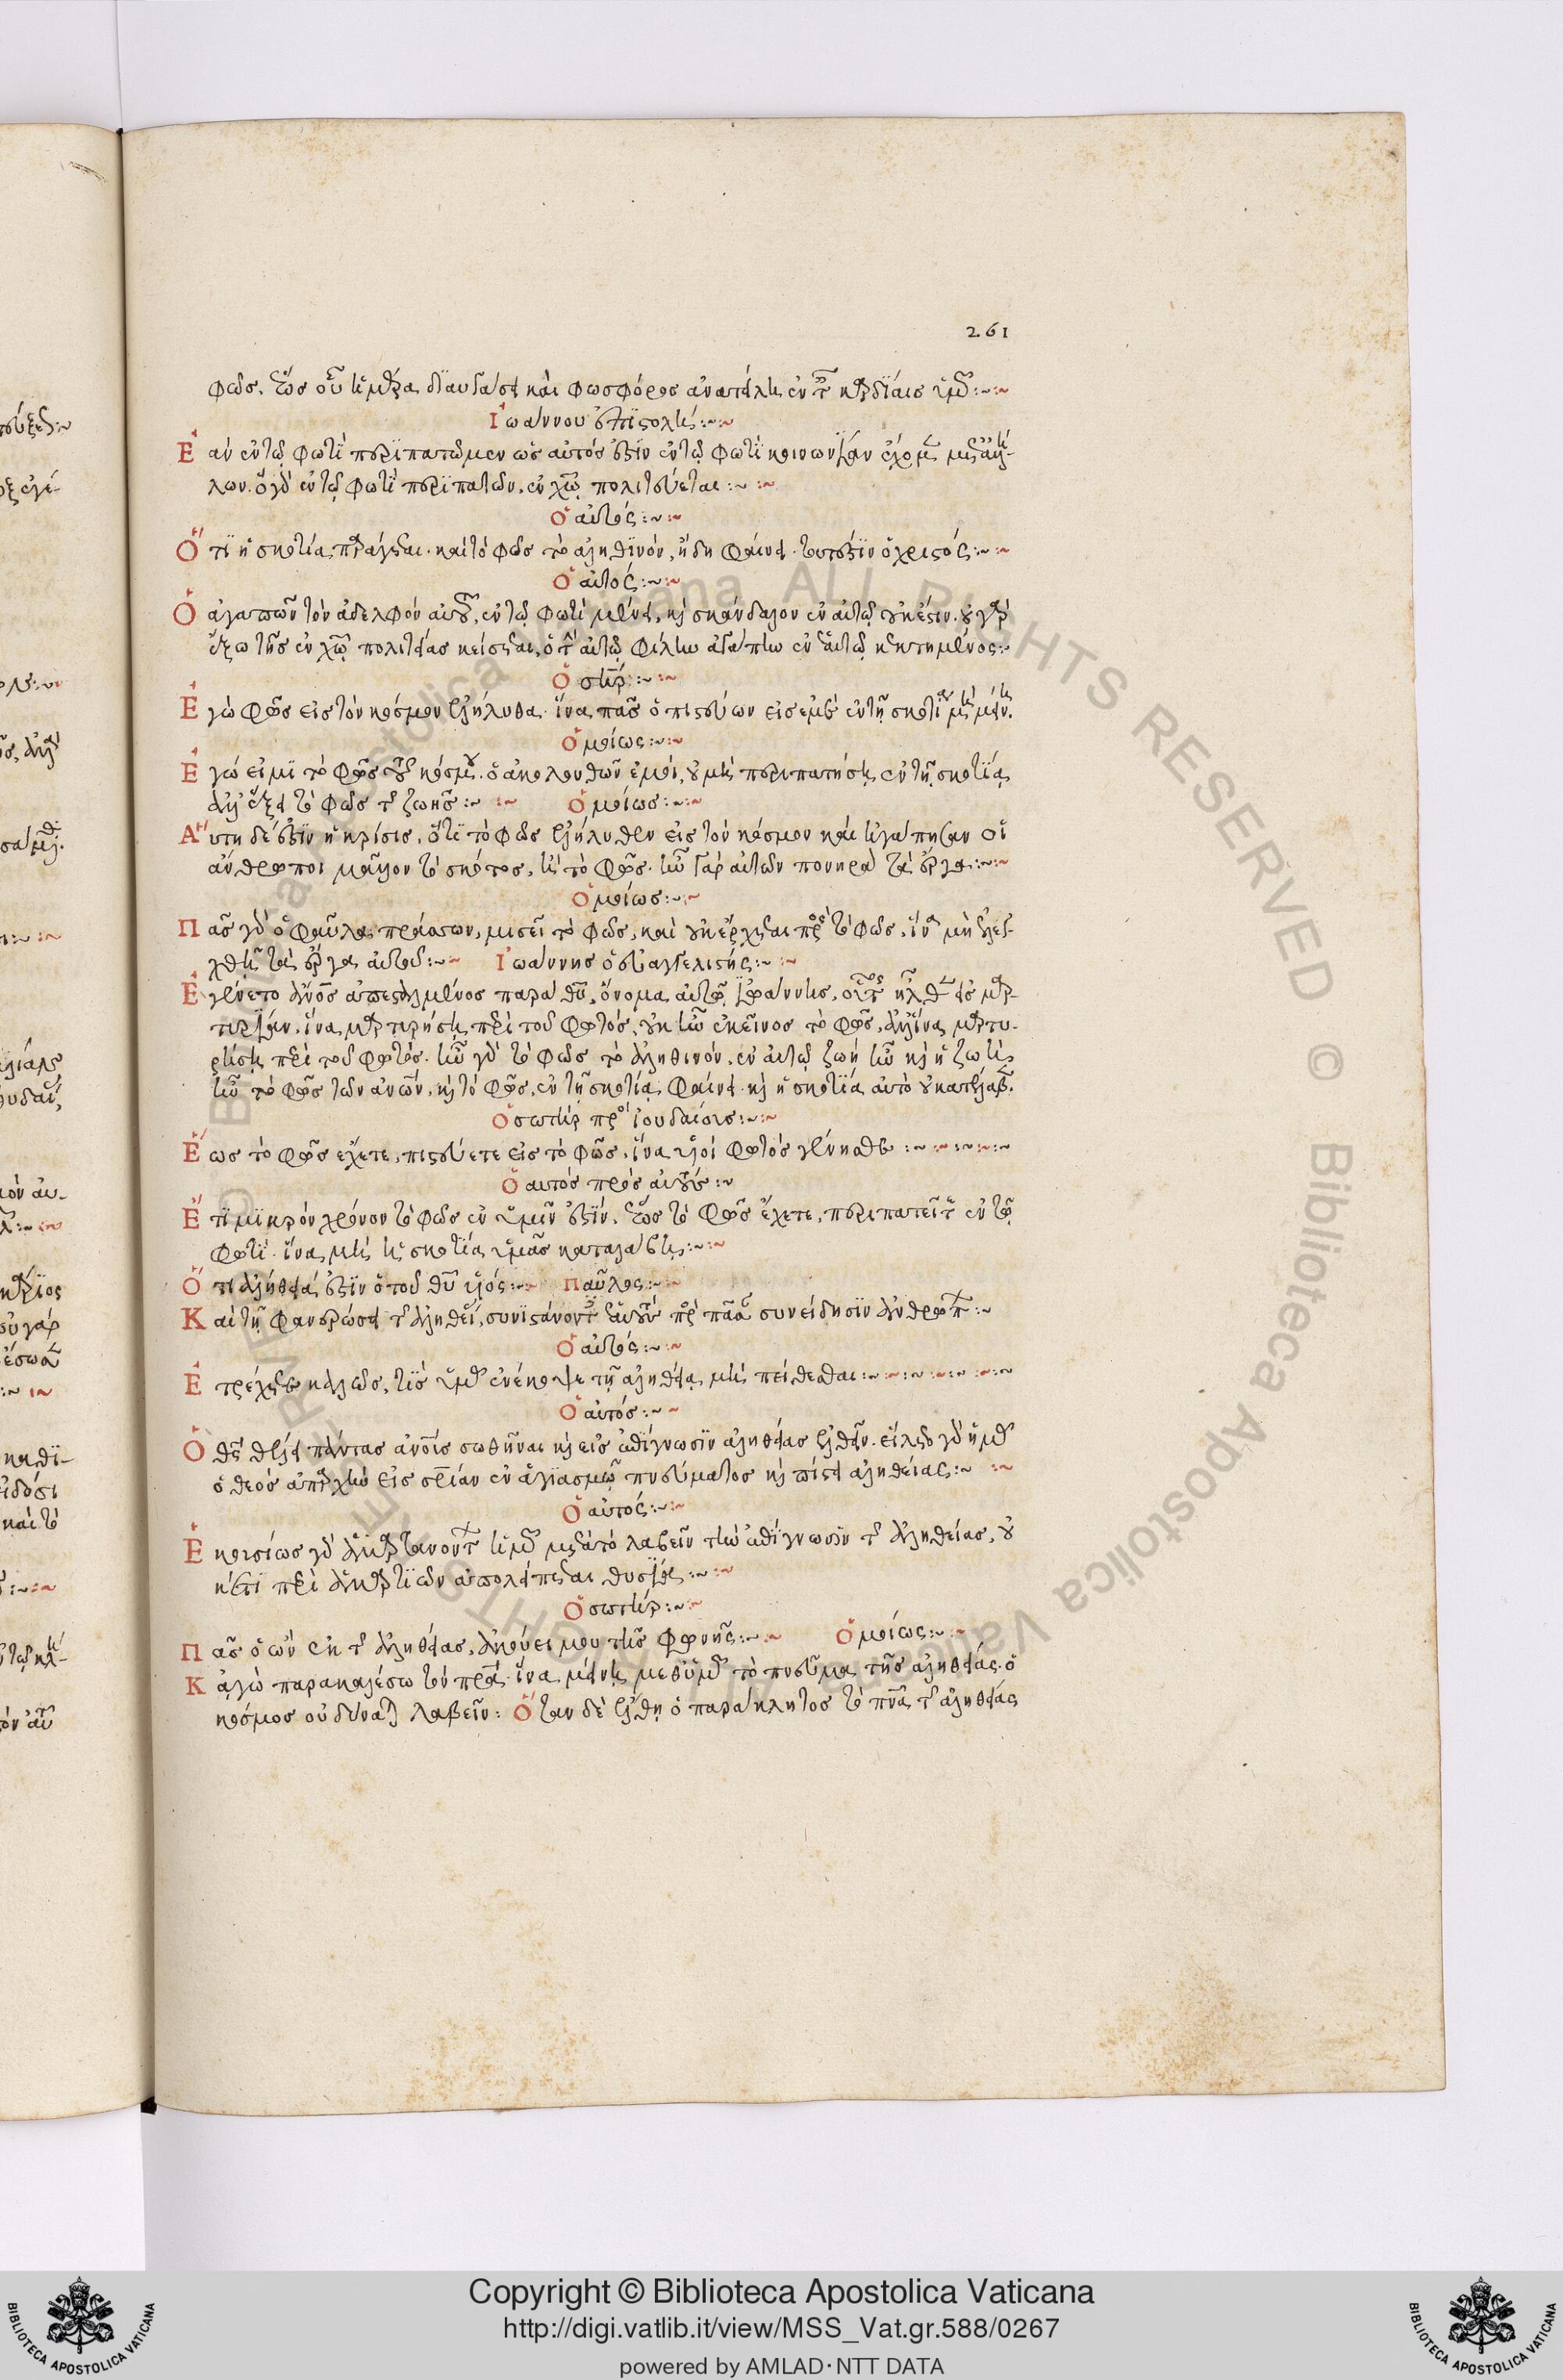 261
φῶς, ἕως οὗ ἡμέρα διαυγάσει καὶ φωσφόρος ἀνατείλῃ ἐν τ καρδίαις ὑμῶν :~
Ἰωάννου ἐπιστολῆς :~
Ἐὰν ἐν τῷ φωτὶ περιπατῶμεν ὡς αὐτός ἐστιν ἐν τῷ φωτὶ κοινωνίαν ἔχομεν μετ ἀλλή-
λων. ὁ γὰρ ἐν τῷ φωτὶ περιπατῶν, ἐν χῶ πολιτεύεται :~
Ὁ αὐτός :~
Ὅτι ἡ σκοτία παράγεται. καὶ τὸ φῶς τὸ ἀληθινὸν, ἤδη φαίνει. τουτέστιν ὁ χριστός :~
Ὁ αὐτός :~
Ὁ ἀγαπῶν τὸν ἀδελφὸν αὐτοῦ, ἐν τῷ φωτὶ μένει, καὶ σκάνδαλον ἐν αὐτῷ οὐκ ἔστιν. οὐ γὰρ
ἔξω τῆς ἐν χῶ πολιτείας κείσεται, ὁ τ αὐτῷ φίλην ἀγάπην ἐν ἑαυτῷ κεκτημένος :~
Ὁ σωτήρ :~
Ἐγὼ φῶς εἰς τὸν κόσμον ἐλήλυθα. ἵνα πᾶς ὁ πιστεύων εἰς ἐμὲ ἐν τῇ σκοτίᾳ μὴ μείνῃ.
Ὁμοίως :~
Ἐγώ εἰμι τὸ φῶς τοῦ κόσμου. ὁ ἀκολουθῶν ἐμοί, οὐ μὴ περιπατήσῃ ἐν τῇ σκοτίᾳ
ἀλλ ἕξει τὸ φῶς τῆς ζωῆς :~ Ὁμοίως :~
Αὕτη δέ ἐστιν ἡ κρίσις, ὅτι τὸ φῶς ἐλήλυθεν εἰς τὸν κόσμον καὶ ἠγάπησαν οἱ
ἄνθρωποι μᾶλλον τὸ σκότος, ἢ τὸ φῶς. ἦν γὰρ αὐτῶν πονηρὰ τὰ ἔργα :~
Ὁμοίως :~
Πᾶς γὰρ ὁ φαῦλα πράσσων, μισεῖ τὸ φῶς, καὶ οὐκ ἔρχεται πρὸς τὸ φῶς, ἵνα μὴ ἐλεγ-
χθῇ τὰ ἔργα αὐτοῦ :~ Ἰωάννης ὁ εὐαγγελιστής :~
Ἐγένετο ἄνος ἀπεσταλμένος παρὰ θῦ, ὄνομα αὐτῷ Ἰωάννης, οὗτος ἦλθεν εἰς μαρ-
τυρίαν, ἵνα μαρτυρήσῃ περὶ τοῦ φωτός, οὐκ ἦν ἐκεῖνος τὸ φῶς, ἀλλ ἵνα μαρτυ-
ρήσῃ περὶ τοῦ φωτός. ἦν γὰρ τὸ φῶς τὸ ἀληθινὸν, ἐν αὐτῷ ζωὴ ἦν καὶ ἡ ζωὴ
ἦν τὸ φῶς τῶν ἀνῶν, καὶ τὸ φῶς, ἐν τῇ σκοτίᾳ φαίνει. καὶ ἡ σκοτία αὐτὸ οὐ κατέλαβεν.
Ὁ σωτὴρ πρὸς ἰουδαίους :~
Ἕως τὸ φῶς ἔχετε, πιστεύετε εἰς τὸ φῶς, ἵνα υἱοὶ φωτὸς γένησθε :~
Ὁ αὐτὸς πρὸς αὐτούς :~
Ἔτι μικρὸν χρόνον τὸ φῶς ἐν ὑμῖν ἐστίν. ἕως τὸ φῶς ἔχετε, περιπατεῖτε ἐν τῷ
φωτὶ. ἵνα μὴ ἡ σκοτία ὑμᾶς καταλάβῃ :~
Ὅτι ἀλήθειά ἐστιν ὁ τοῦ θῦ υἱός :~ Παῦλος :~
Καὶ τῇ φανερώσει τῆς ἀληθείας, συνιστάνοντες ἑαυτοὺς πρὸς πᾶσαν συνείδησιν ἀνθρώπων :~
Ὁ αὐτός :~
Ἐτρέχετε καλῶς, τίς ὑμᾶς ἐνέκοψε τῇ ἀληθείᾳ μὴ πείθεσθαι :~
Ὁ αὐτός :~
Ὁ θς θέλει πάντας ἀνους σωθῆναι καὶ εἰς ἐπίγνωσιν ἀληθείας ἐλθεῖν. εἵλετο γὰρ ἡμᾶς
ὁ θεὸς ἀπαρχὴν εἰς σρίαν ἐν ἁγιασμῷ πνεύματος καὶ πίστει ἀληθείας :~
Ὁ αὐτός :~
Ἑκουσίως γὰρ ἁμαρτανόντων ἡμῶν μετὰ τὸ λαβεῖν τὴν ἐπίγνωσιν τῆς ἀληθείας, οὐ
κέτι περὶ ἁμαρτιῶν ἀπολείπεται θυσία :~
Ὁ σωτήρ :~
Πᾶς ὁ ὢν ἐκ τῆς ἀληθείας, ἀκούει μου τῆς φωνῆς :~ Ὁμοίως :~
Κἀγὼ παρακαλέσω τὸν πρα. ἵνα μείνῃ μεθ ὑμῶν τὸ πνεῦμα τῆς ἀληθείας. ὁ
κόσμος οὐ δύναται λαβεῖν: Ὅταν δὲ ἔλθῃ ὁ παράκλητος τὸ πνα τῆς ἀληθείας
Copyright © Biblioteca Apostolica Vaticana
http://digi.vatlib.it/view/MSS_Vat.gr.588/0267
powered by AMLAD·NTT DATA